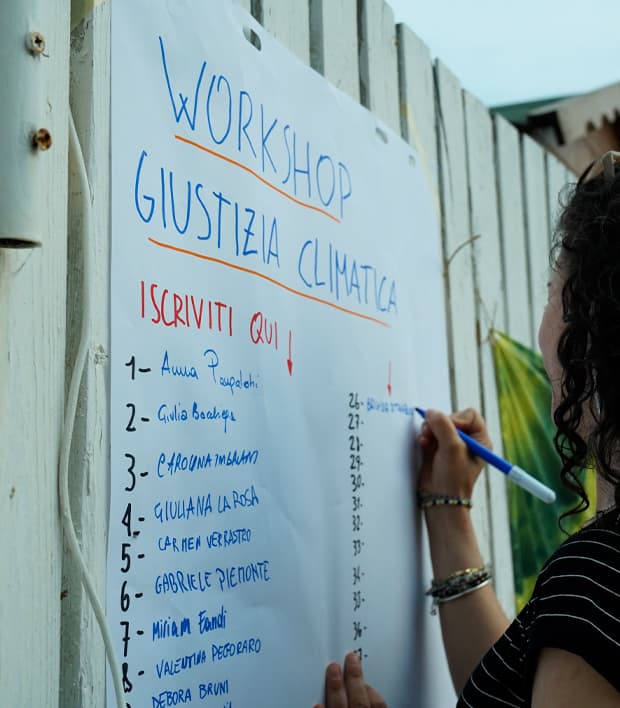 WORKSHOP
GIUSTIZIA CLIMATICA
ISCRIVITI QUI
1- Anna
2- Giulia
3- CAROLINA
4- GIULIANA LA ROSA
5- CARMEN VERRASTRO
6- GABRIELE PIEMONTE
7- Miriam Fandi
8- VALENTINA PECORARO
DEBORA BRUNI
26-
27-
28-
29-
30-
31-
32-
33-
34-
35-
36-